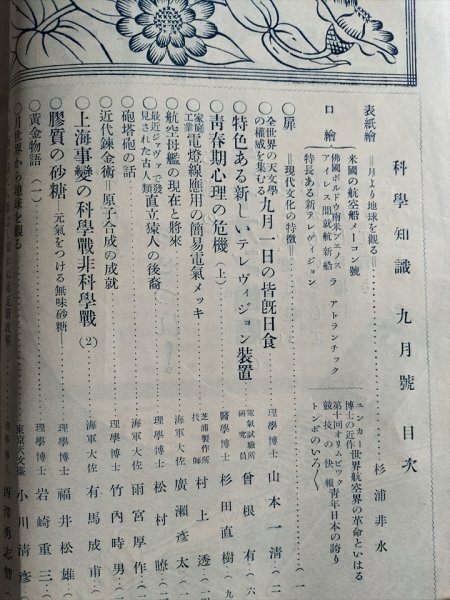 科學知識 九月號 目次
表紙繪 ═月より地球を觀る═ 杉浦非水
口繪
米國の航空船メーコン號
佛國ボルドウ南米ブエノス
アイレス間就航新船 ラ アトランチック
特長ある新テレヴィジョン
ユンカース博士の近作 世界航空界の革命といはる
第十回オリムピック競技の快報 靑年日本の誇り
トンボのいろ〳〵
○扉 ═現代文化の特徵═ (一
○全世界の天文學の權威を集むる 九月一日の皆旣日食 理學博士 山本一淸 (二
○特色ある新しいテレヴィジョン裝置 電氣試驗所硏究員 曾根有 (六
○靑春期心理の危機(上) 醫學博士 杉田直樹 (九
○家庭工業 電燈線應用の簡易電氣メッキ 芝浦製作所技師 村上透 (一
○航空母艦の現在と將來 海軍大佐 廣瀨彥太 (一
○最近ジャヴァで發見された古人類 直立猿人の後裔 理學博士 松村瞭 (
○砲塔砲の話 海軍大佐 雨宮厚作 (
○近代鍊金術═原子合成の成就 理學博士 竹內時男 (
○上海事變の科學戰非科學戰(2) 海軍大佐 有馬成甫 (
○膠質の砂糖 —元氣をつける無味砂糖— 理學博士 福井松雄 (
○黃金物語(一) 理學博士 岩崎重三 (
○月世界から地球を觀る 東京天文臺 小川淸彥 (
理學博士 西澤勇志智